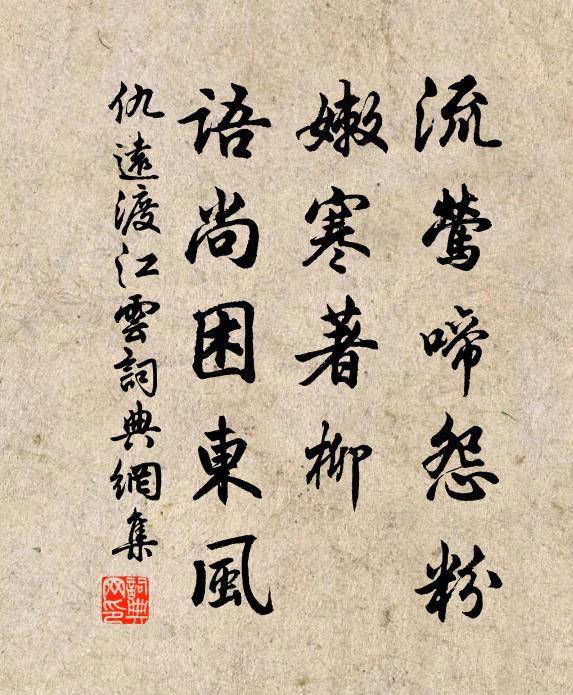 流鶯啼怨粉
嫩寒著柳
語尚困東風
仇遠渡江雲詞典網集
詞典網印